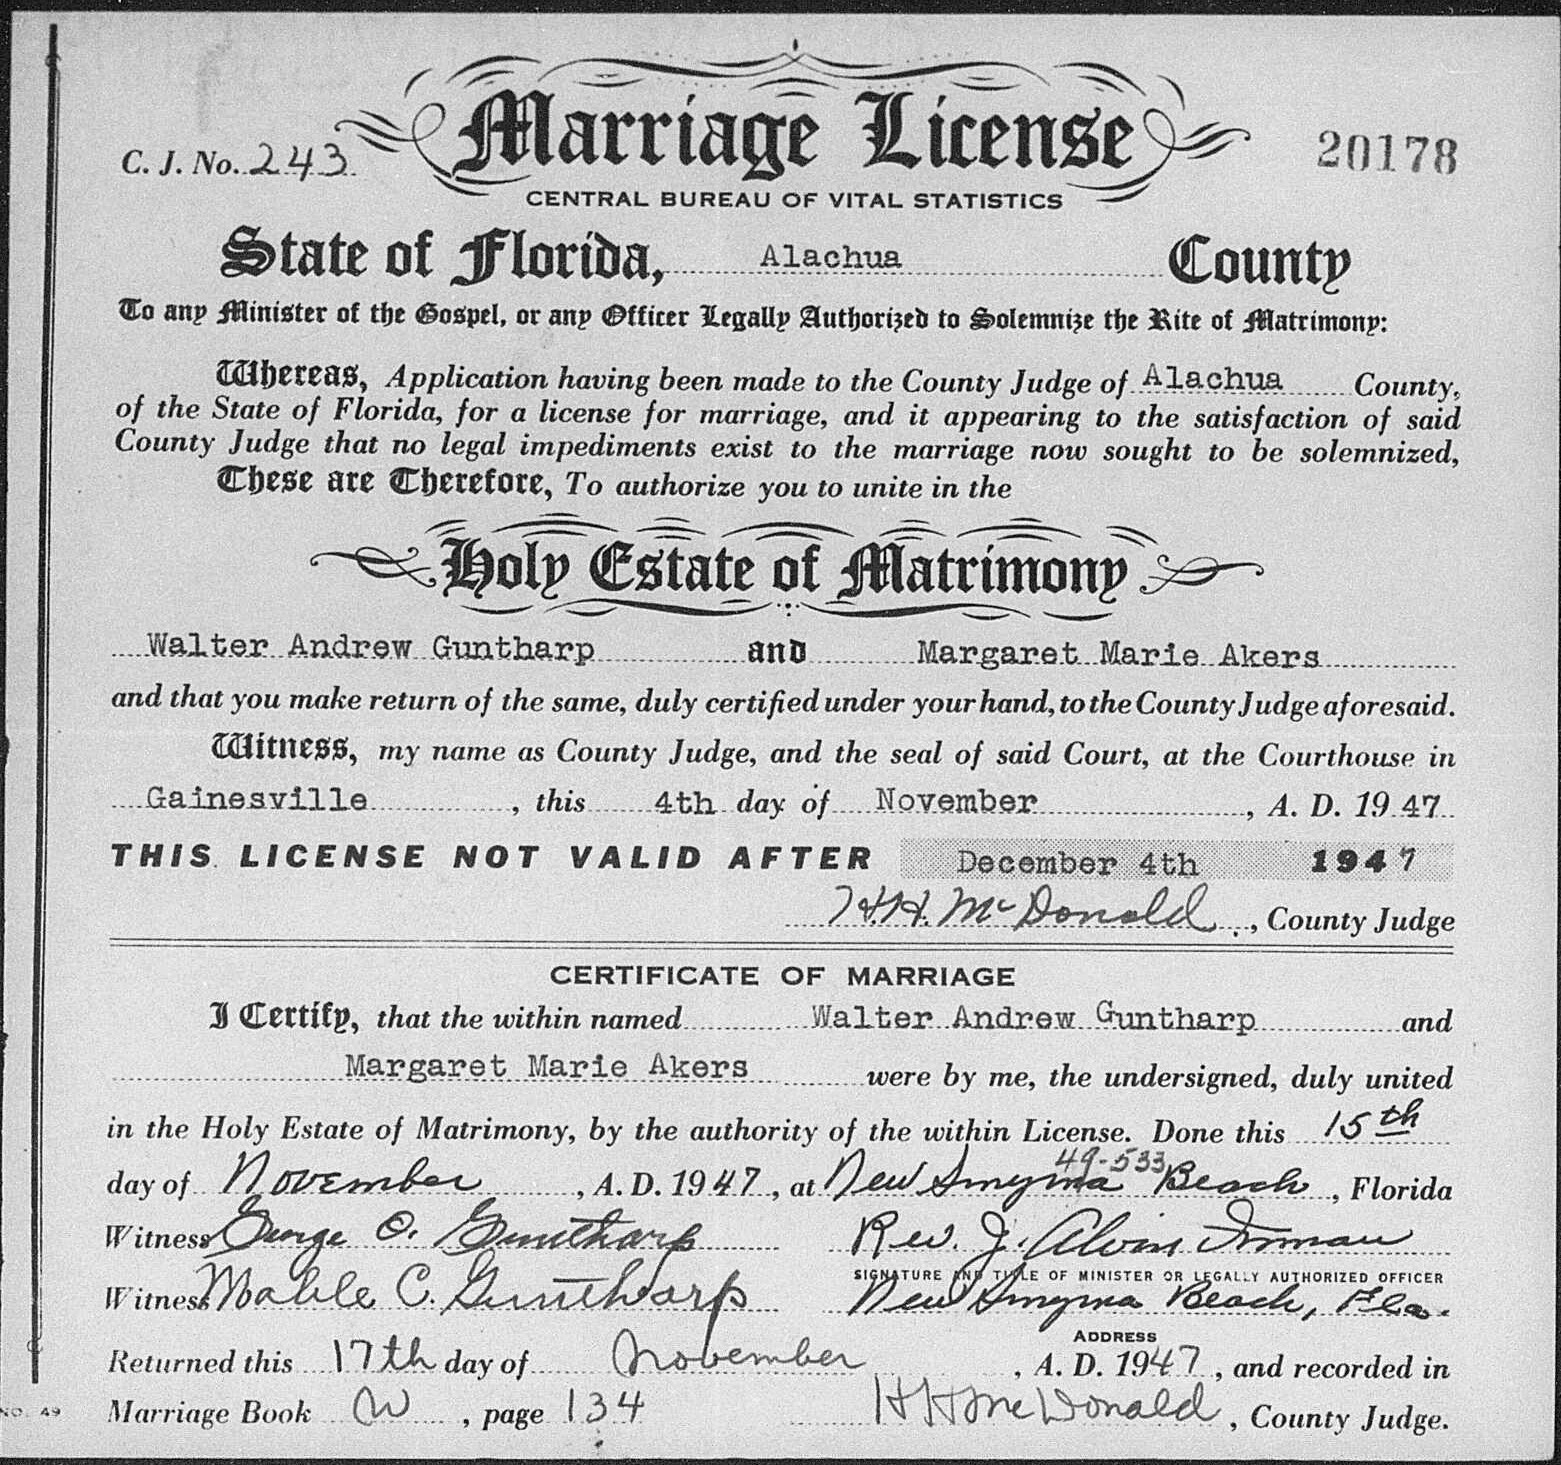 Marriage License
C. J. No. 243
20178
CENTRAL BUREAU OF VITAL STATISTICS
State of Florida, Alachua County
To any Minister of the Gospel, or any Officer Legally Authorized to Solemnize the Rite of Matrimony:
Whereas, Application having been made to the County Judge of Alachua County,
of the State of Florida, for a license for marriage, and it appearing to the satisfaction of said
County Judge that no legal impediments exist to the marriage now sought to be solemnized,
These are Therefore, To authorize you to unite in the
Holy Estate of Matrimony
Walter Andrew Guntharp and Margaret Marie Akers
and that you make return of the same, duly certified under your hand, to the County Judge aforesaid.
Witness, my name as County Judge, and the seal of said Court, at the Courthouse in
Gainesville, this 4th day of November, A. D. 1947
THIS LICENSE NOT VALID AFTER December 4th 1947
H.H. McDonald, County Judge
CERTIFICATE OF MARRIAGE
I Certify, that the within named Walter Andrew Guntharp and
Margaret Marie Akers were by me, the undersigned, duly united
in the Holy Estate of Matrimony, by the authority of the within License. Done this 15th
49-533
day of November, A. D. 1947, at New Smyrna Beach, Florida
Witness George O. Guntharp Rev. J. Alvin Inman
SIGNATURE AND TITLE OF MINISTER OR LEGALLY AUTHORIZED OFFICER
Witness Mable C. Guntharp New Smyrna Beach, Fla.
ADDRESS
Returned this 17th day of November, A. D. 1947, and recorded in
NO. 49
Marriage Book W, page 134 H H McDonald, County Judge.